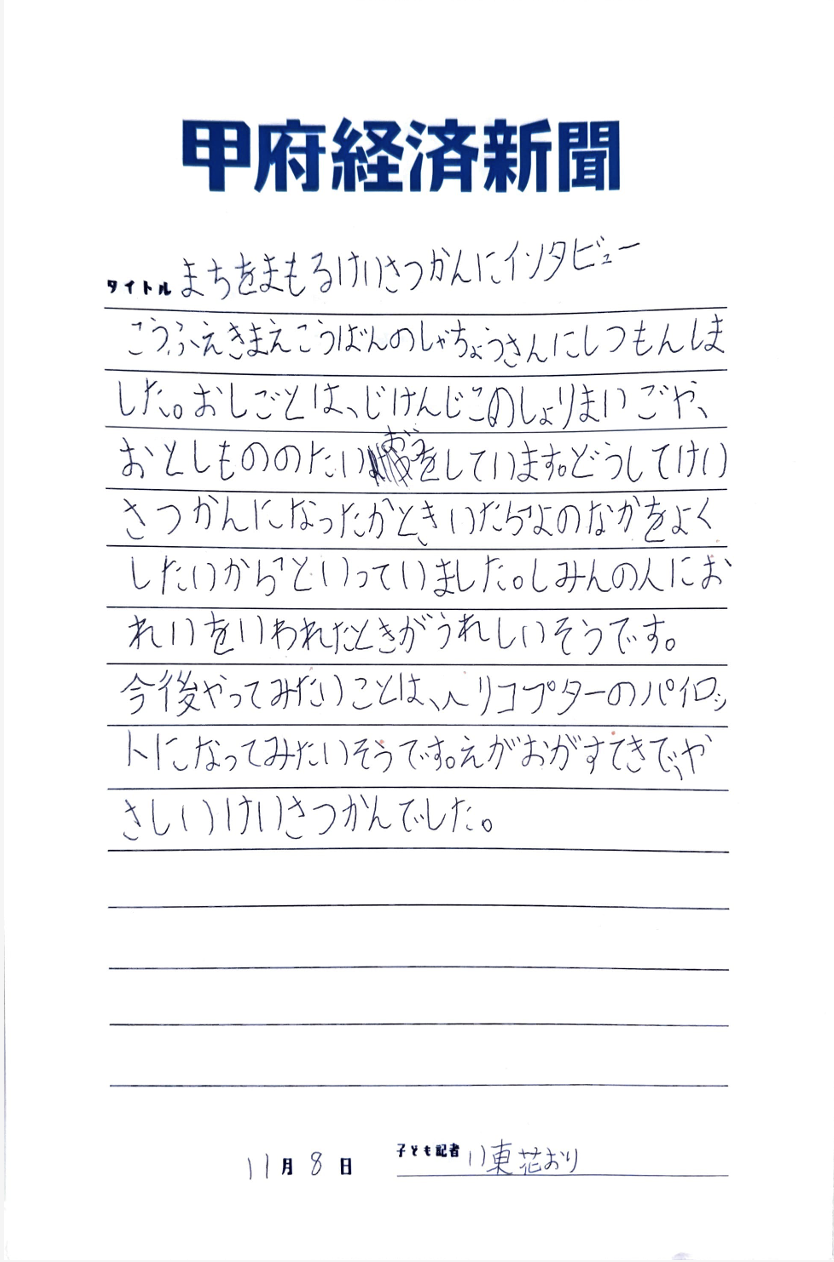 甲府経済新聞
タイトル まちをまもるけいさつかんにインタビュー
こうふえきまえこうばんのしゃちょうさんにしつもんしま
した。おしごとは、じけんじこのしょりまいごや、
おとしもののたいおうをしています。どうしてけい
さつかんになったかときいたら「よのなかをよく
したいから」といっていました。しみんの人にお
れいをいわれたときがうれしいそうです。
今後やってみたいことは、ヘリコプターのパイロッ
トになってみたいそうです。えがおがすてきで、や
さしいけいさつかんでした。
11月8日 子ども記者 い東花おり